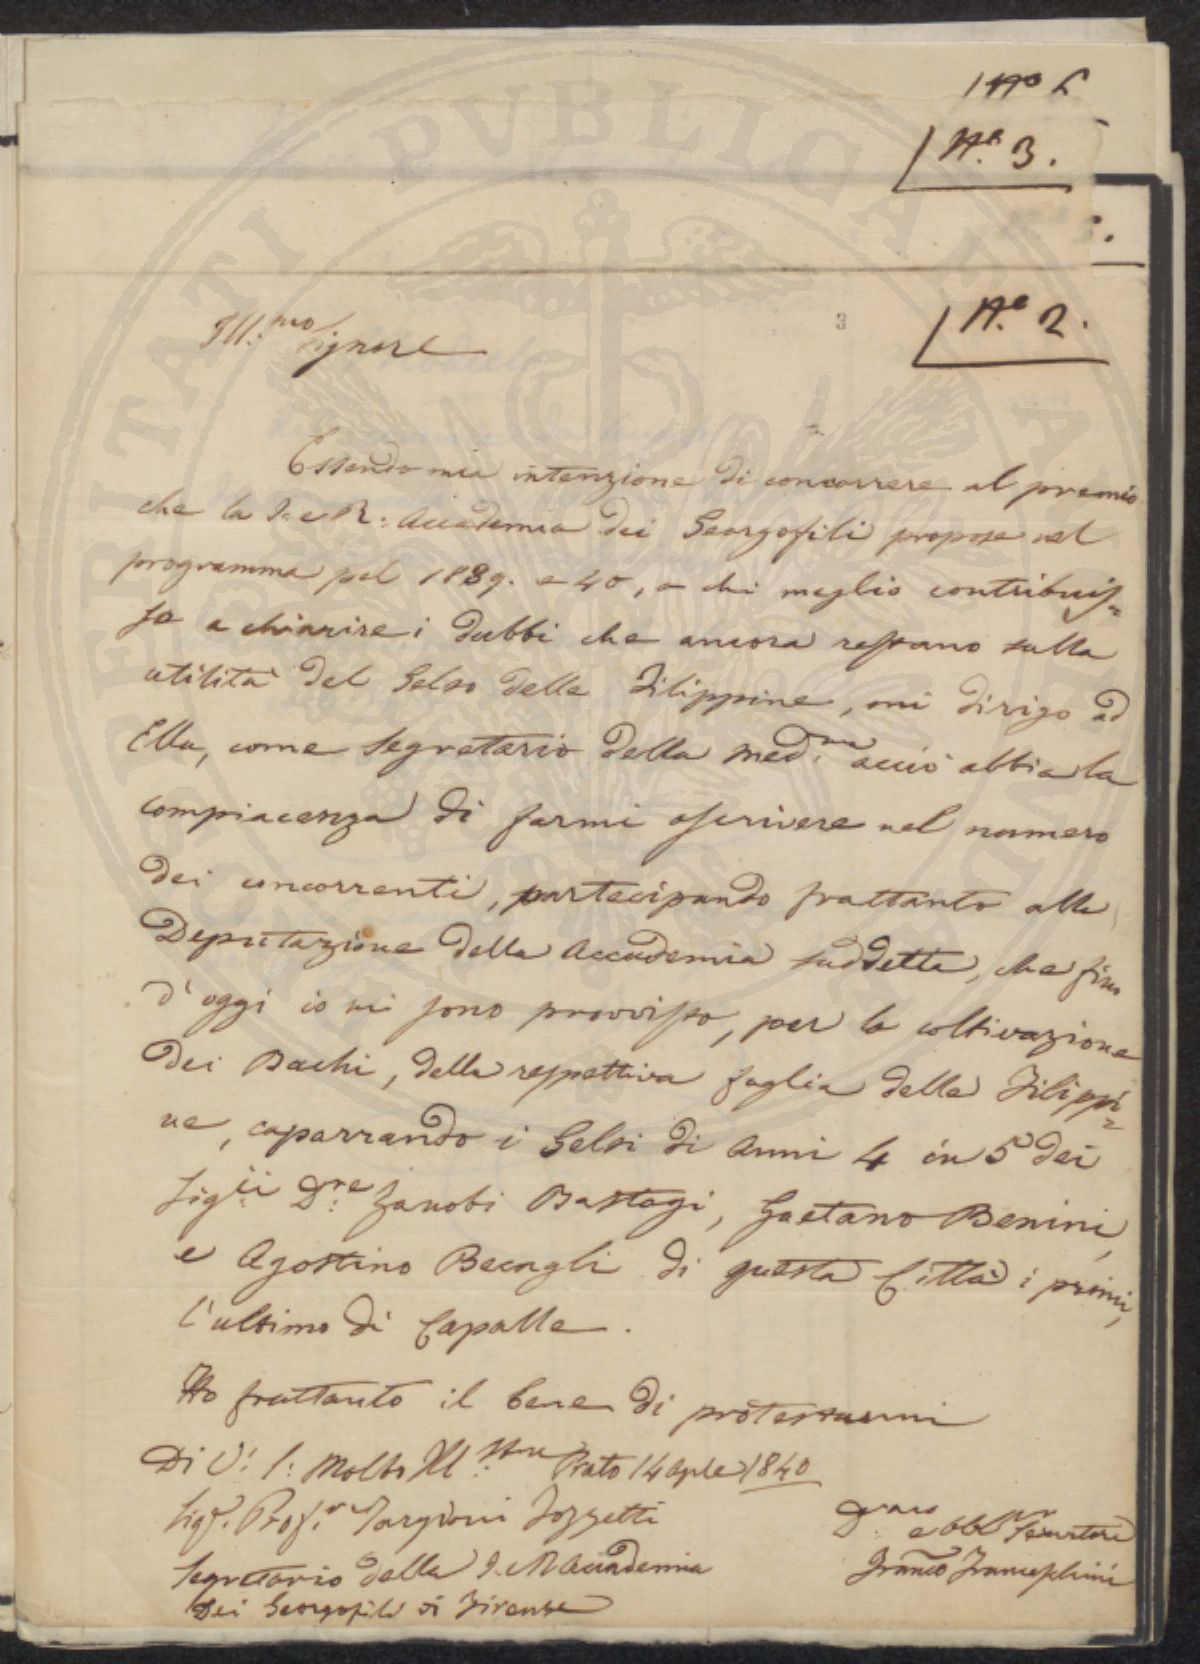 N.º 3.
N.º 2.
3
Ill.mo Signore
Essendo mia intenzione di concorrere al premio
che la I. e R. Accademia dei Georgofili propose nel
programma pel 1839. e 40, a chi meglio contribuis=
se a chiarire i dubbi che ancora restano sulla
utilità del Gelso delle Filippine, mi dirigo ad
Ella, come Segretario della med.ma acciò abbia la
compiacenza di farmi ascrivere nel numero
dei concorrenti, partecipando frattanto alla
Deputazione della Accademia suddetta, che fino
d'oggi io mi sono provvisto, per la coltivazione
dei Bachi, della respettiva foglia delle Filippi=
ne, caparrando i Gelsi di Anni 4 in 5 dei
Sig.ii D.re Zanobi Bastogi, Gaetano Benini,
e Agostino Becagli di questa Città i primi,
l'ultimo di Capalle.
Ho frattanto il bene di protestarmi
Di V: S: Molto Ill.stre Prato 14 Aple 1840
Sig.r Prof.re Targioni Tozzetti
Segretario della I. R Accademia
dei Georgofili di Firenze
D.mo e Obb. Servitore
Franco Franceschini
PVBLICAE